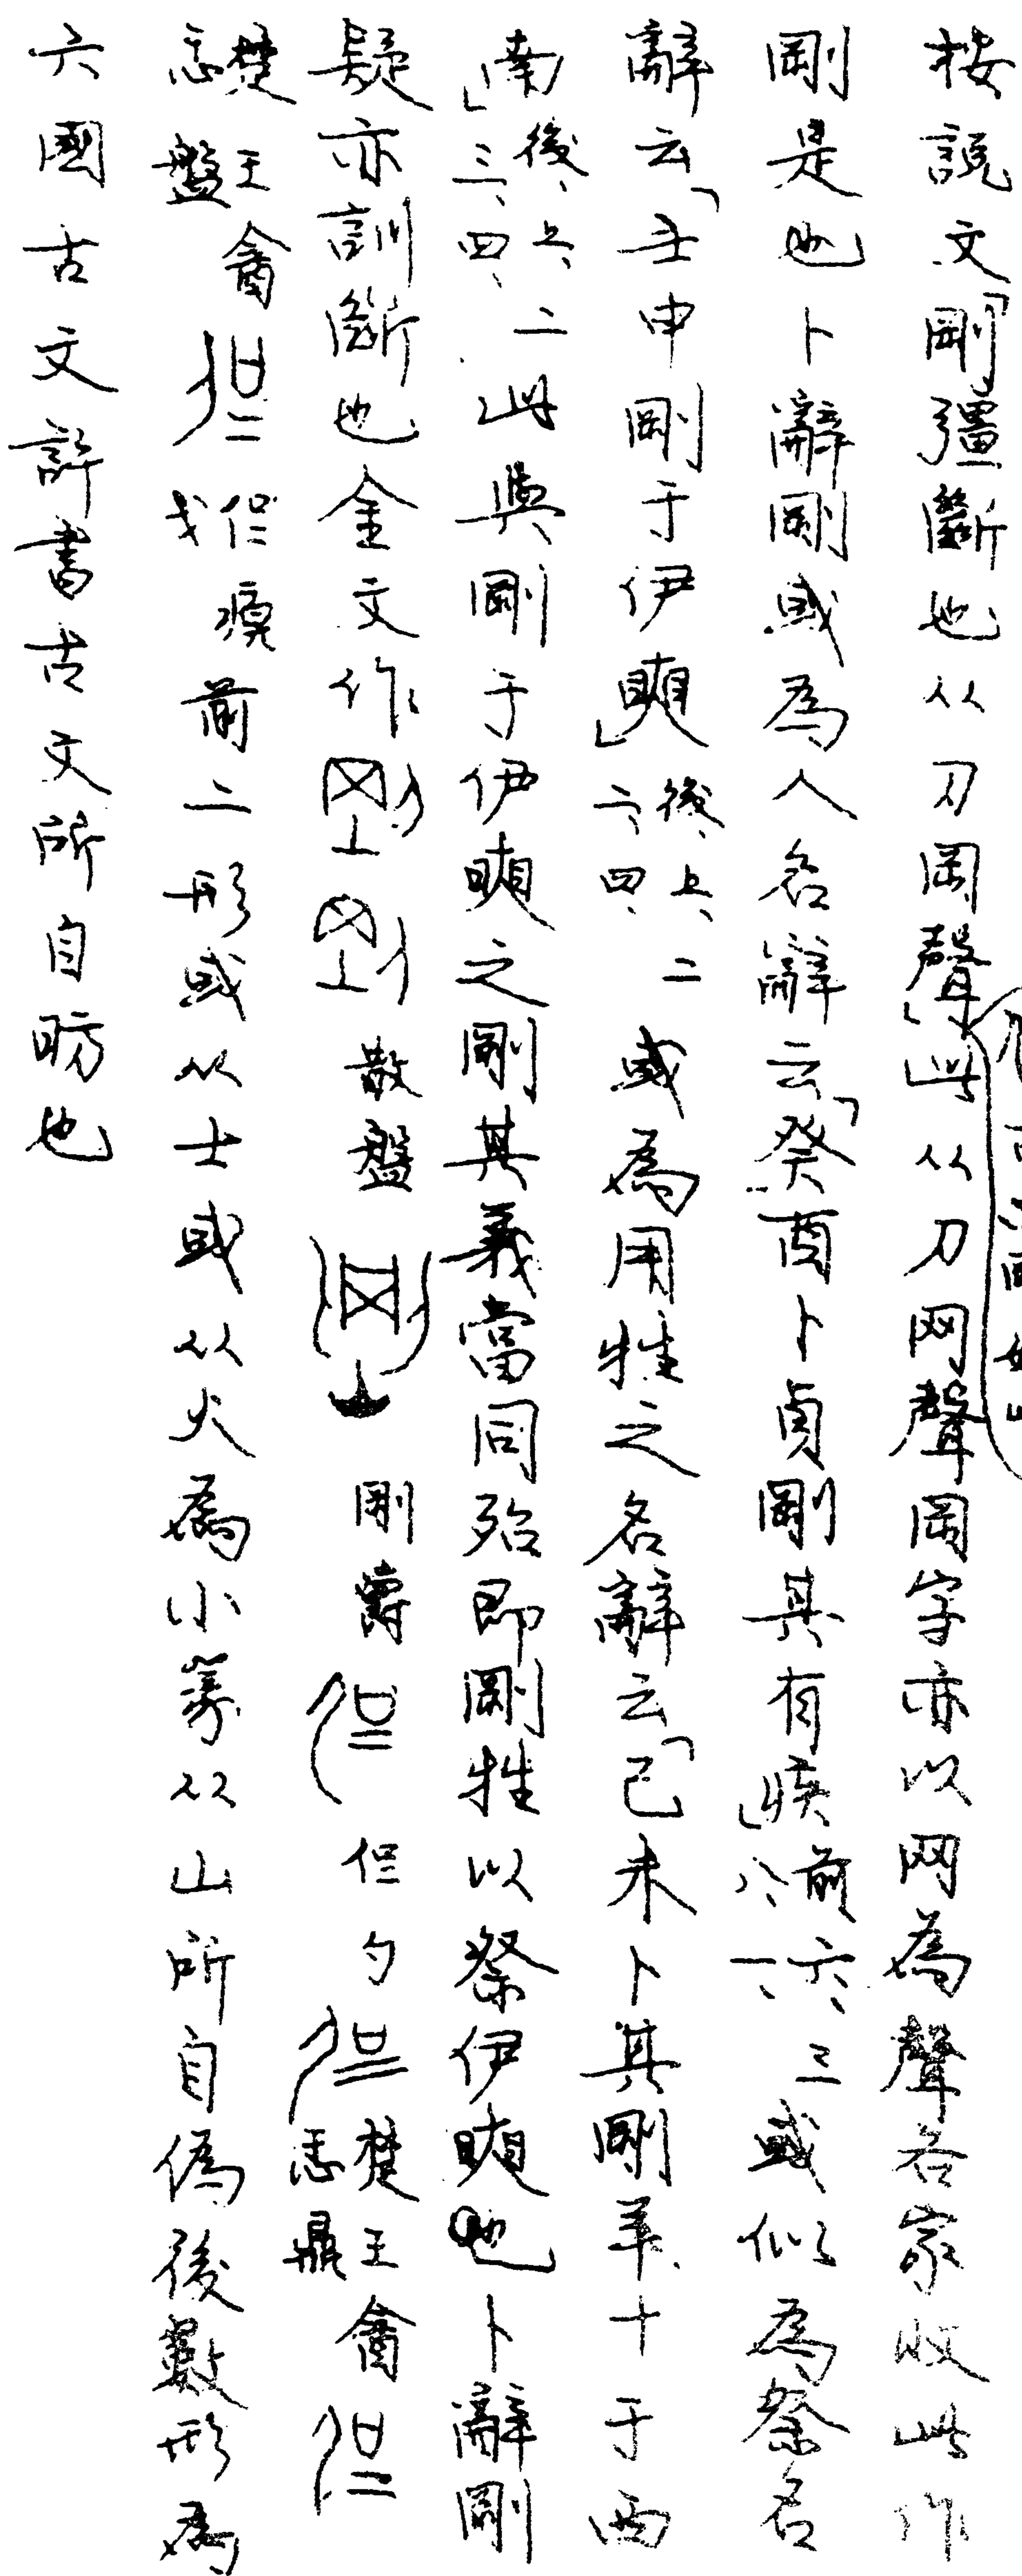 按說文「剛彊斷也从刀岡聲」此从刀网聲岡字亦以网為聲各家收此作
剛是也卜辭剛或為人名辭云「癸酉卜貞剛其有疾」前、六、三八、一、或似為祭名
辭云「壬申剛于伊奭」後、上、二二、四、或為用牲之名辭云「己未卜其剛羊十于西
南」後、上、二三、四、此與剛于伊奭之剛其義當同殆即剛牲以祭伊奭也卜辭剛
疑亦訓斷也金文作散盤剛爵但勺楚王酓忎鼎
楚王酓忎盤但㡀戈前二形或从士或从火為小篆从山所自偽後數形為
六國古文許書古文所自昉也